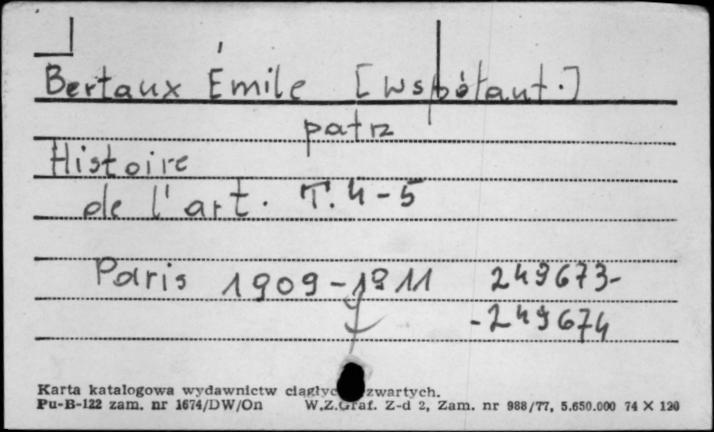 Bertaux Émile [współaut.]
patrz
Histoire
de l'art. T. 4-5
Paris 1909-1911 249673-
-249674
Karta katalogowa wydawnictw ciągłyc zwartych.
Pu-B-122 zam. nr 1674/DW/On W.Z.Graf. Z-d 2, Zam. nr 988/77, 5.650.000 74 X 120